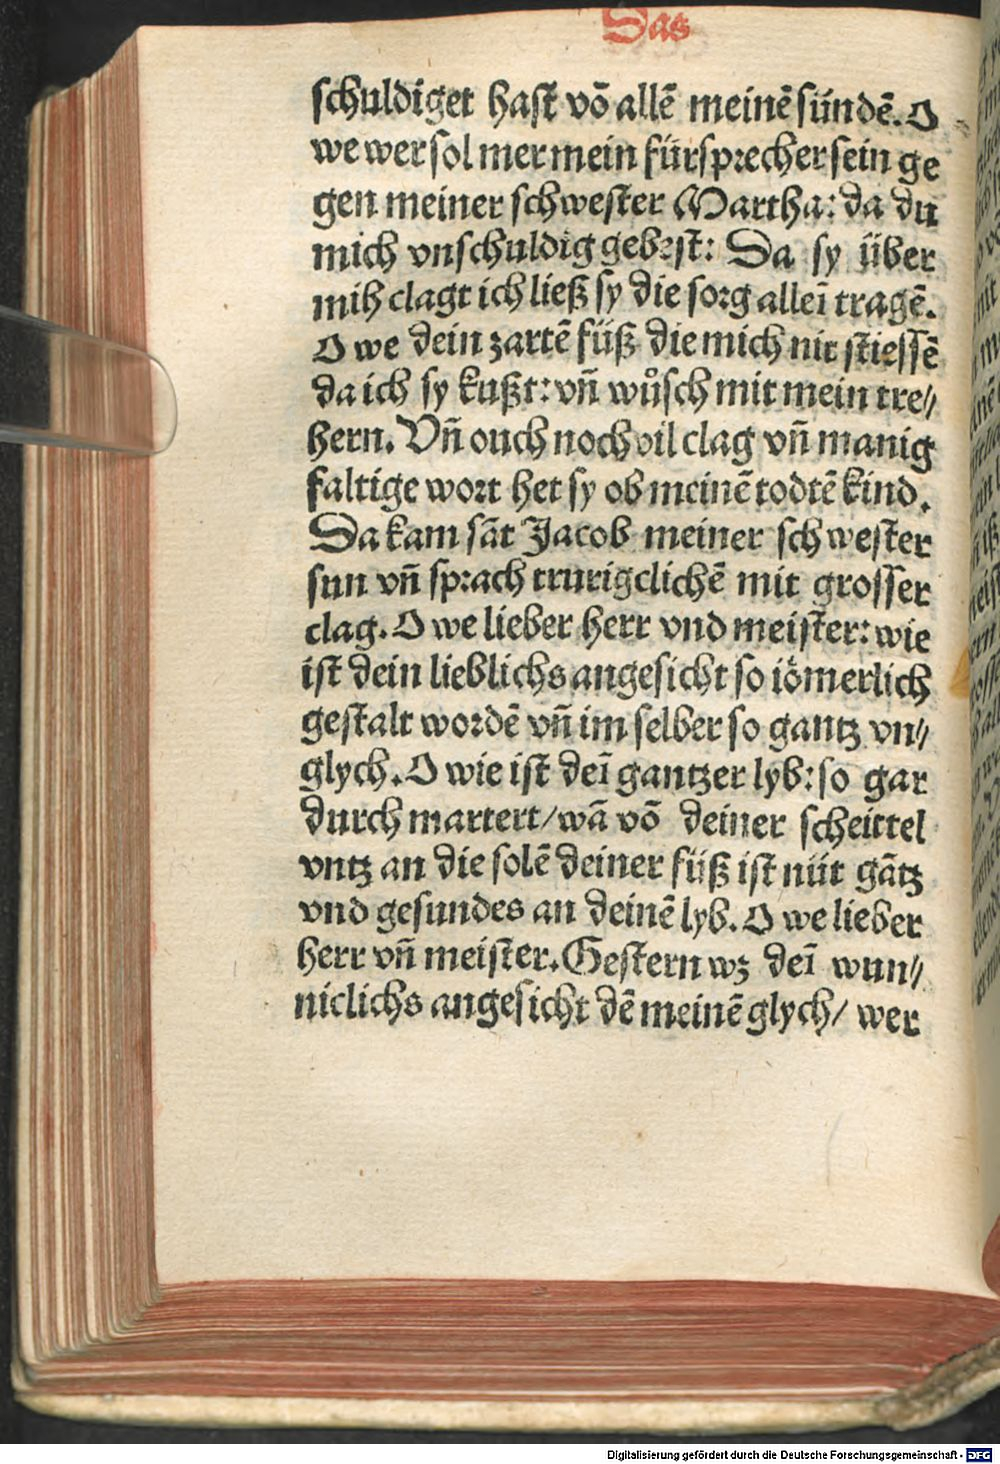 Das
schuldiget hast vō allē meinē sündē. O
we wer sol mer mein fürsprecher sein ge
gen meiner schwester Martha: da du
mich vnschuldig gebest: Da sy über
mih clagt ich ließ sy die sorg alleī tragē.
O we dein zartē füß die mich nit stiessē
da ich sy kußt: vn̄ wůsch mit mein tre⸗
hern. Vn̄ ouch noch vil clag vn̄ manig
faltige wort het sy ob meinē todtē kind.
Da kam sāt Jacob meiner schwester
sun vn̄ sprach trurigclichē mit grosser
clag. O we lieber herr vnd meister: wie
ist dein lieblichs angesicht so iömerlich
gestalt wordē vn̄ im selber so gantz vn⸗
glych. O wie ist deī gantzer lyb: so gar
durch martert/ wā vō deiner scheittel
vntz an die solē deiner füß ist nüt gātz
vnd gesundes an deinē lyb. O we lieber
herr vn̄ meister. Gestern wz deī wun⸗
niclichs angesicht dē meinē glych/ wer
Digitalisierung gefördert durch die Deutsche Forschungsgemeinschaft - DFG